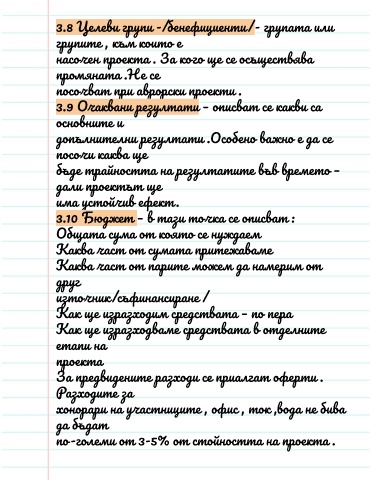 3.8 Целеви групи -/бенефициенти/- групата или
групите , към които е
насочен проекта . За кого ще се осъществява
промяната .Не се
посочват при аврорски проекти .
3.9 Очаквани резултати – описват се какви са
основните и
допълнителни резултати .Особено важно е да се
посочи каква ще
бъде трайността на резултатите във времето –
дали проектът ще
има устойчив ефект.
3.10 Бюджет – в тази точка се описват :
Общата сума от която се нуждаем
Каква част от сумата притежаваме
Каква част от парите можем да намерим от
друг
източник/съфинансиране /
Как ще изразходим средствата – по пера
Как ще изразходваме средствата в отделните
етапи на
проекта
За предвидените разходи се приалгат оферти .
Разходите за
хонорари на участниците , офис , ток ,вода не бива
да бъдат
по-големи от 3-5% от стойността на проекта .